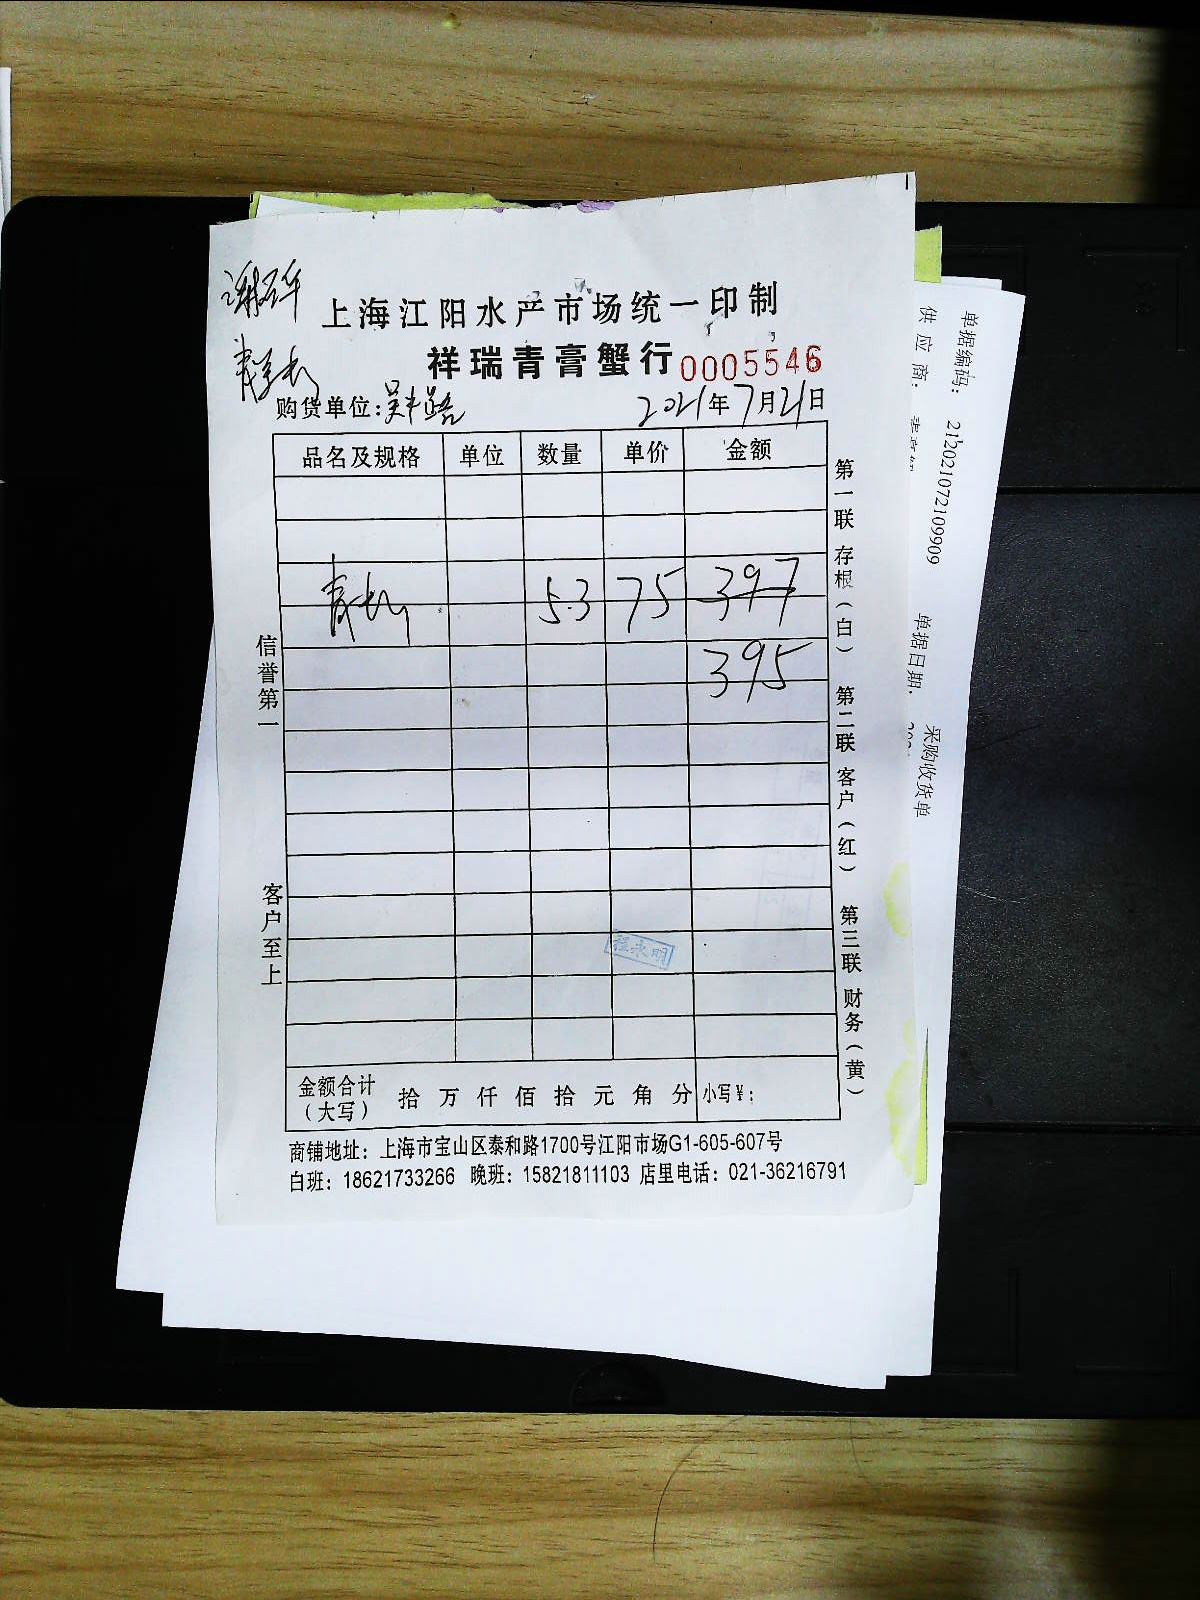 上海江阳水产市场统一印制
祥瑞青膏蟹行 0005546
购货单位: 2021年7月21日
品名及规格 单位 数量 单价 金额
5.3 75 397
395
信誉第一
客户至上
第一联 存根（白） 第二联 客户（红） 第三联 财务（黄）
程永明
金额合计（大写） 拾 万 仟 佰 拾 元 角 分 小写￥:
商铺地址：上海市宝山区泰和路1700号江阳市场G1-605-607号
白班：18621733266 晚班：15821811103 店里电话：021-36216791
采购收货单
单据编码： 21202107210990​9
供应商：
单据日期：